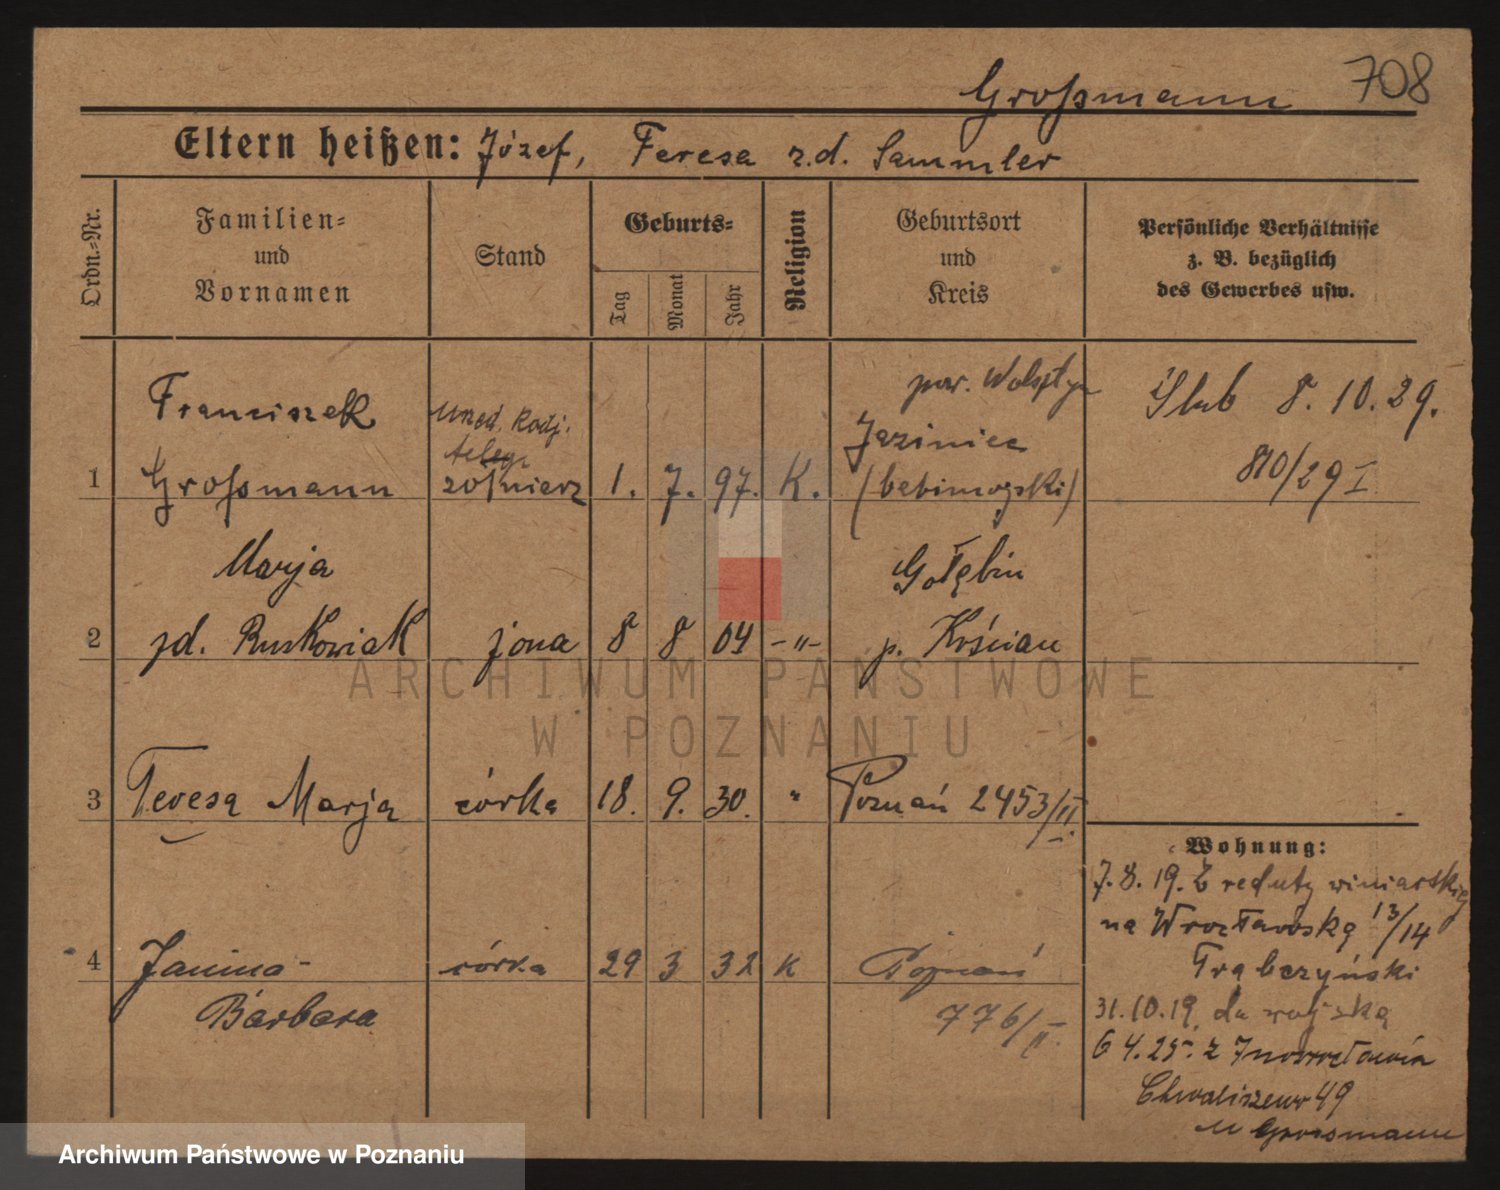 Großmann 708
Eltern heißen: Józef, Teresa z.d. Sammler
Ordn.=Nr.
Familien=
und
Vornamen
Stand
Geburts=
Tag
Monat
Jahr
Religion
Geburtsort
und
Kreis
Persönliche Verhältnisse
z. B. bezüglich
des Gewerbes usw.
Franciszek
urzęd. Radj.
telegr.
pow. Wolsztyn
Ślub 8. 10. 29.
Jażiniec
810/29 I
1 Großmann żołnierz 1. 7. 97. K. (babimojski)
Marja
Gołębin
2 zd. Ruskowiak żona 8 8 04 -"- p. Kościan
3 Teresa Marja córka 18. 9. 30. " Poznań 2453/II.
4 Janina- córka 29 3 32 K Poznań
Barbara 776/II.
Wohnung:
7.8.19. Z reduty winiarskiej
na Wrocławską 13/14
Trąbczyński
31.10.19. do wojska
6 4.25. z Inowrocławia
Chwaliszewo 49
M Grossmann
ARCHIWUM PAŃSTWOWE
W POZNANIU
Archiwum Państwowe w Poznaniu